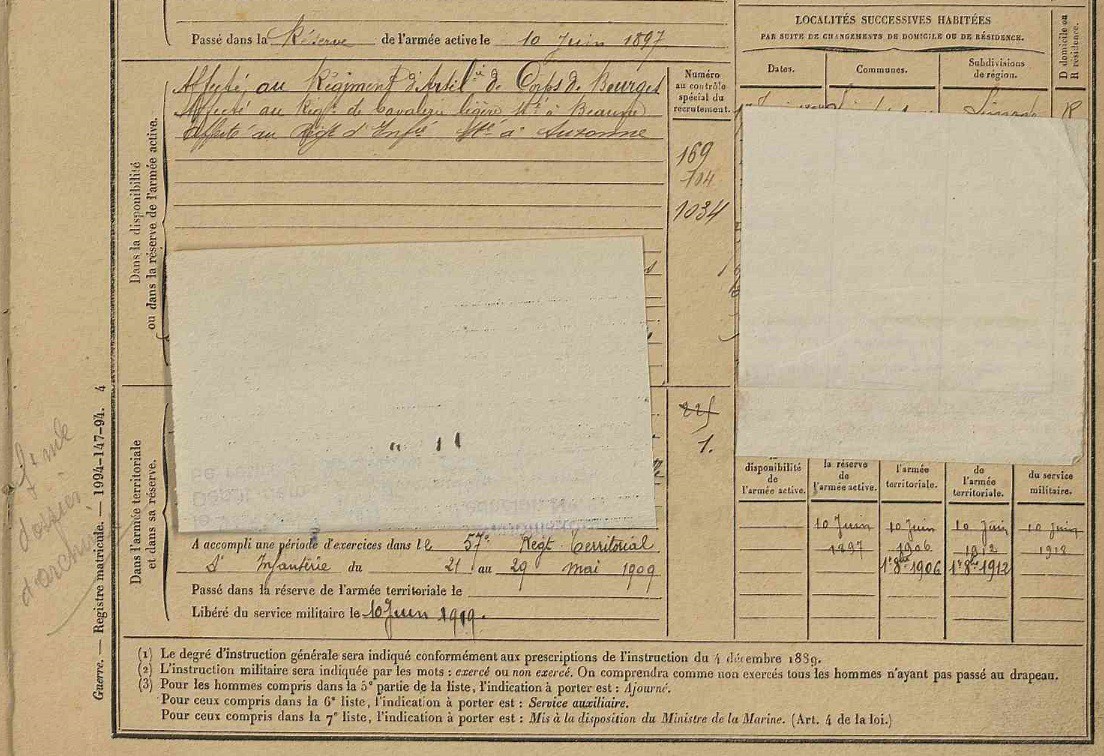 Passé dans la Réserve de l'armée active le 10 Juin 1897
LOCALITÉS SUCCESSIVES HABITÉES
PAR SUITE DE CHANGEMENTS DE DOMICILE OU DE RÉSIDENCE.
Dates.
Communes.
Subdivisions
de région.
D domicile ou
R résidence.
R
Dans la disponibilité
ou dans la réserve de l'armée active.
Affecté au Régiment d'Artil ie de Corps de Bourges
Affecté au Régt de Cavalerie légère à Beaune
Affecté au Régt d'Infie à Auxonne
Numéro
au contrôle
spécial du
recrutement.
169
704
1034
1.
Dans l'armée territoriale
et dans sa réserve.
A accompli une période d'exercices dans le 57e Régt Territorial
d'Infanterie du 21 au 29 mai 1909
Passé dans la réserve de l'armée territoriale le
Libéré du service militaire le 10 Juin 1919.
disponibilité
de
l'armée active.
la réserve
de
l'armée active.
l'armée
territoriale.
de
l'armée
territoriale.
du service
militaire.
10 Juin 10 Juin 10 Juin 10 Juin
1897 1906 1912 1912
1er 8bre 1906 1er 8bre 1912
Guerre. — Registre matricule. — 1994-147-94. 4
dossier
d'archi
(1) Le degré d'instruction générale sera indiqué conformément aux prescriptions de l'instruction du 4 décembre 1889.
(2) L'instruction militaire sera indiquée par les mots : exercé ou non exercé. On comprendra comme non exercés tous les hommes n'ayant pas passé au drapeau.
(3) Pour les hommes compris dans la 5e partie de la liste, l'indication à porter est : Ajourné.
Pour ceux compris dans la 6e liste, l'indication à porter est : Service auxiliaire.
Pour ceux compris dans la 7e liste, l'indication à porter est : Mis à la disposition du Ministre de la Marine. (Art. 4 de la loi.)